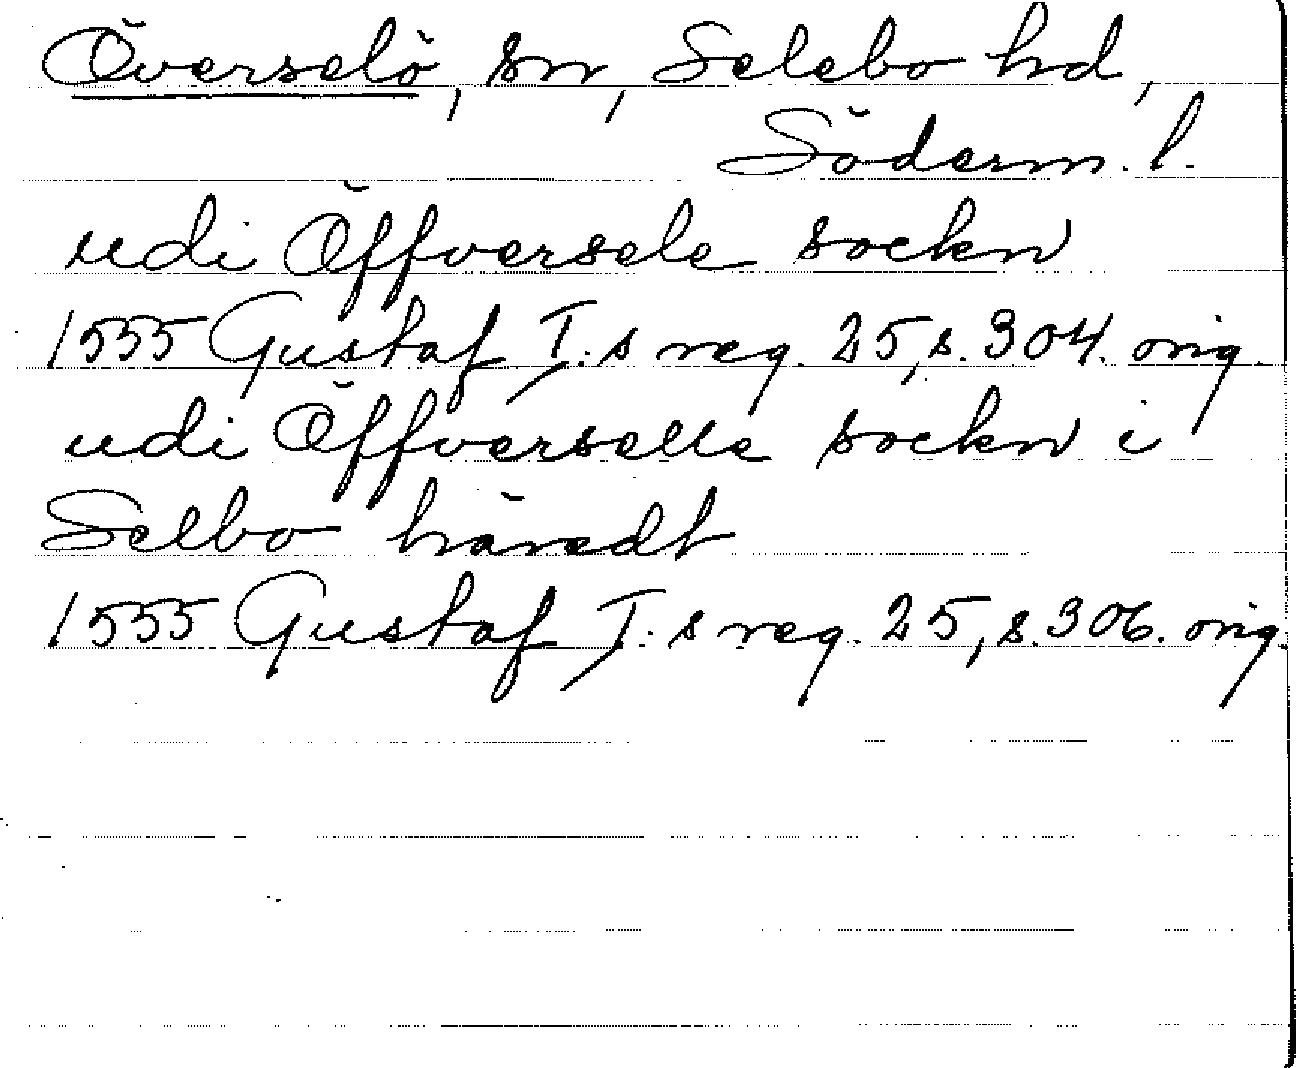 Överselö, sn, Selebo hd,
Söderm. l.
udi Öffversele sockn
1555 Gustaf I:s reg. 25, s. 304. orig.
udi Öffverselle sockn i
Selbo häredt
1555 Gustaf I:s reg. 25, s. 306. orig.